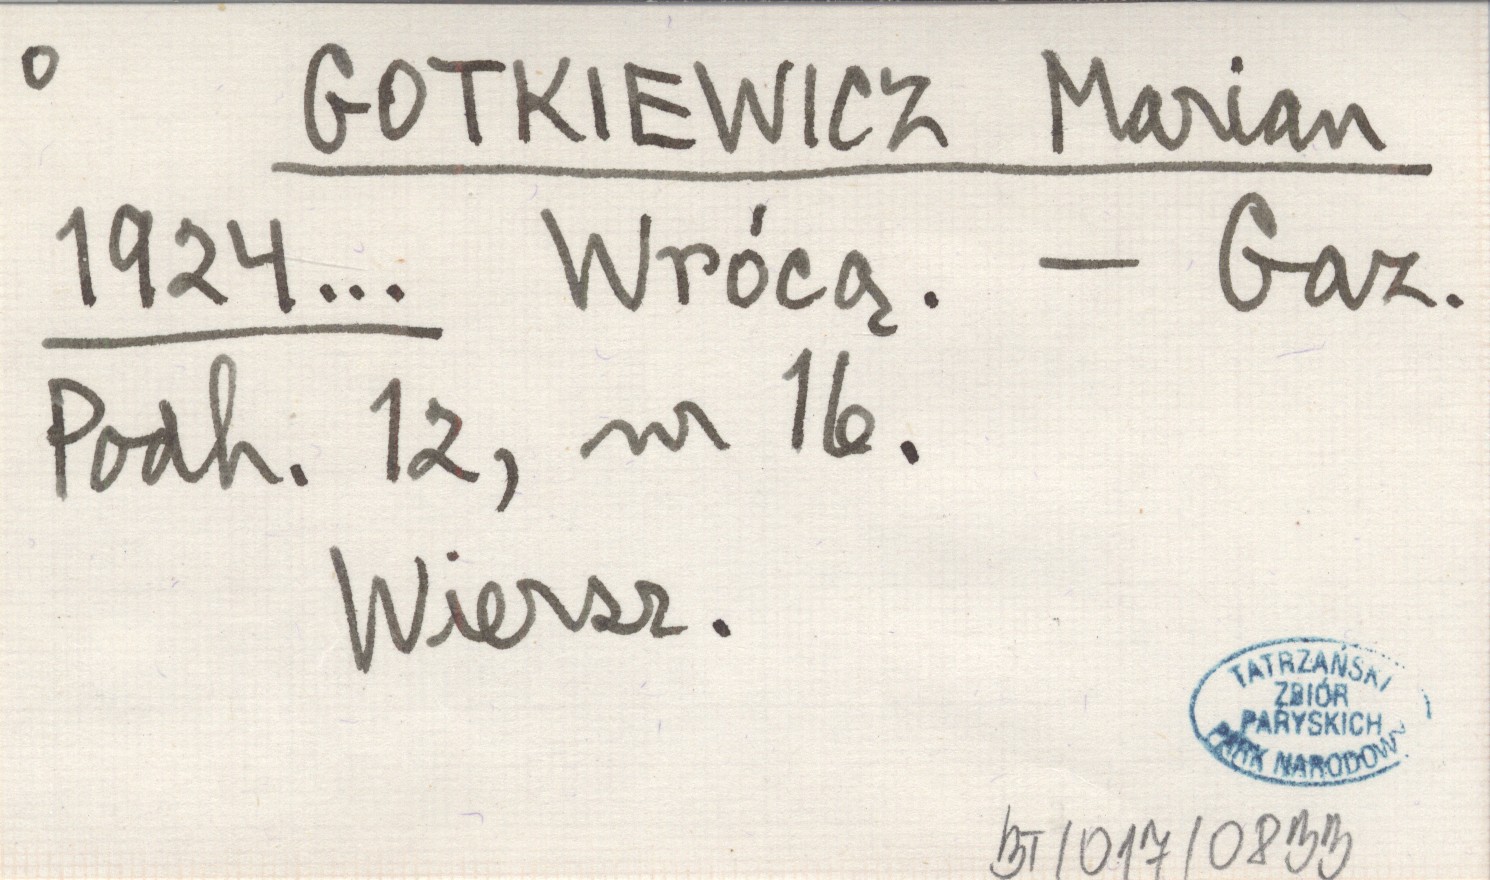 o GOTKIEWICZ Marian
1924... Wrócą. — Gaz.
Podh. 12, nr 16.
Wiersz.
TATRZAŃSKI
ZBIÓR
PARYSKICH
PARK NARODOWY
BT/017/0833